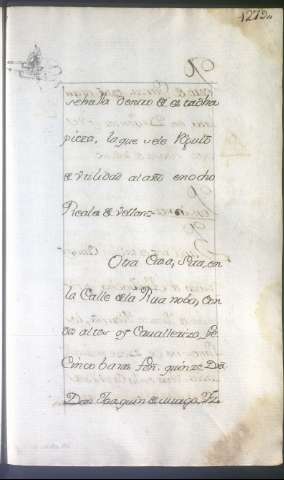 1272
se halla dentro de esta dha
pieza, la que se le Reputo
de Utilidad al año en ocho
Reales de vellon =
Otra Casa, Sita, en
la Calle de la Rua noba, con
dos altos y Cavalleriza, 
Cinco baras fon. quinze Dª
Dan Joaquin de